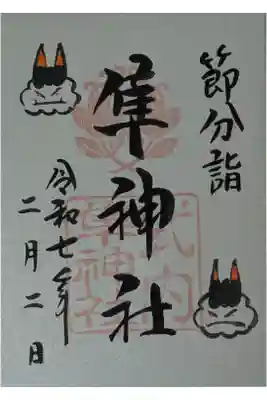 節分詣
隼神社
令和七年
二月二日